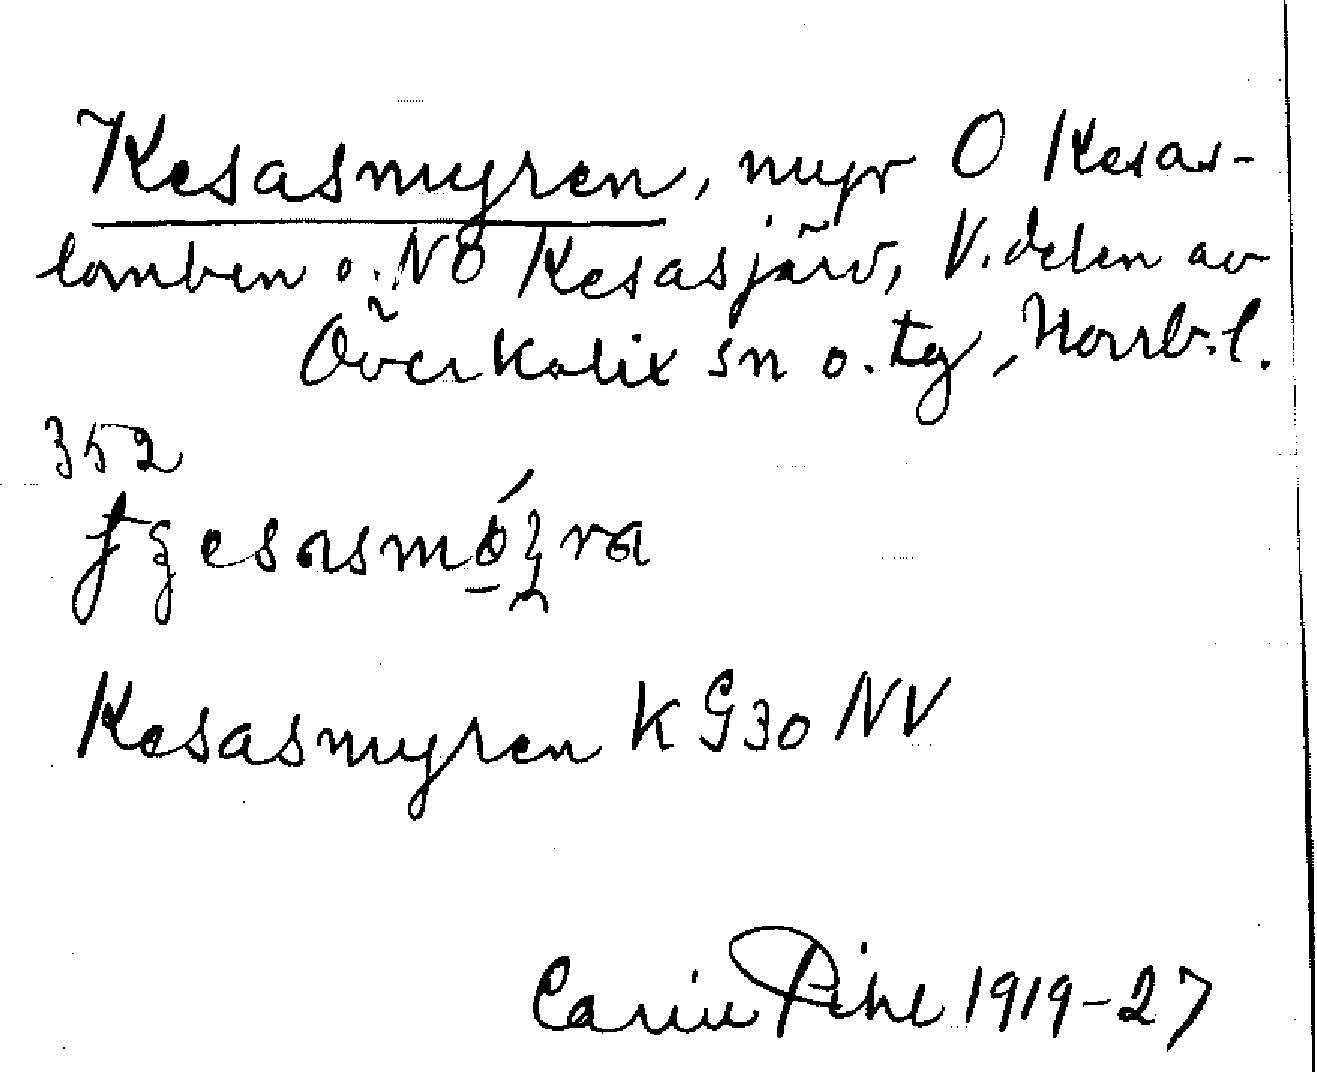 Kesasmyren, myr O Kesas-
lomben o. NO Kesasjärv, V. delen av
Överkalix sn o. tg, Norrb.l.
352
Kesasmyren K G30 NV
Carin Pihl 1919-27